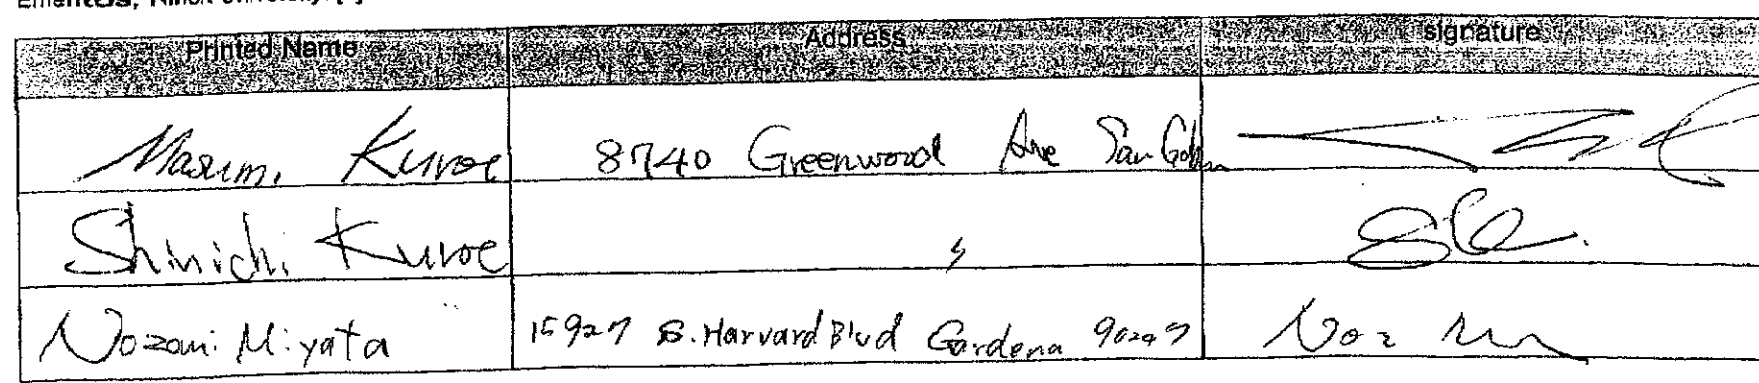 Emeritus, Nihon University. [
Printed Name Address signature
Masumi Kuroe 8740 Greenwood Ave San Gabr
Shinichi Kuroe 〃
Nozomi Miyata 15927 S. Harvard Blvd Gardena 90247 Noz